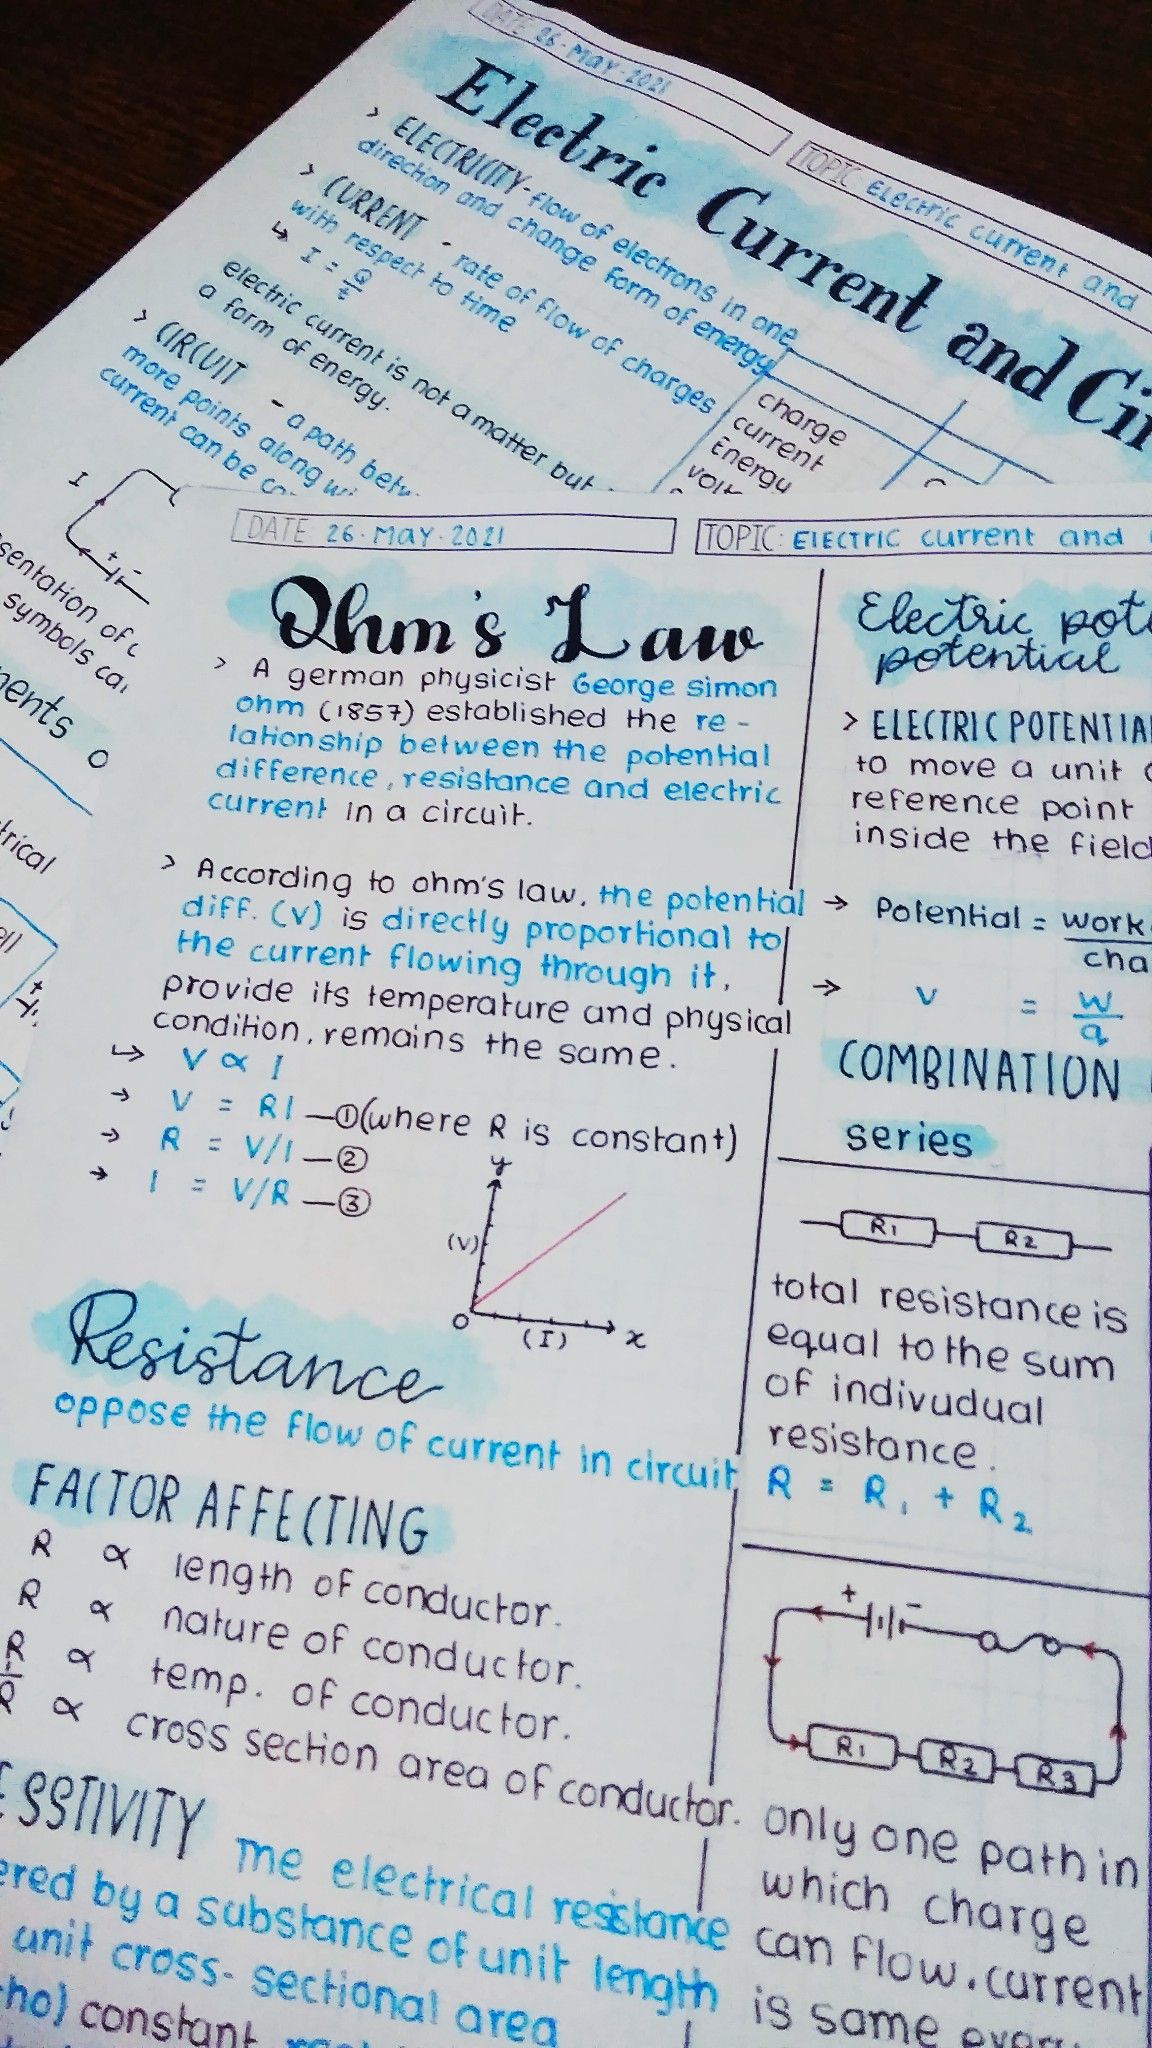 DATE 26·MAY·2021
TOPIC: Electric current and
Electric Current and Cir
> ELECTRICITY - flow of electrons in one
direction and change form of energy
> CURRENT - rate of flow of charges
with respect to time
↳ I = Q/t
electric current is not a matter but
a form of energy.
> CIRCUIT - a path betw
more points along wi
current can be co
charge
current
Energy
volt
I
+ -
sentation of c
symbols ca
ments o
trical
ell
DATE 26·MAY·2021
TOPIC: Electric current and
Ohm's Law
> A german physicist George simon
ohm (1857) established the re-
lationship between the potential
difference, resistance and electric
current in a circuit.
> According to ohm's law, the potential
diff. (V) is directly proportional to
the current flowing through it,
provide its temperature and physical
condition, remains the same.
↳ V ∝ I
→ V = RI —①(where R is constant)
→ R = V/I —②
→ I = V/R —③
y
(V)
O
(I)
x
Resistance
oppose the flow of current in circuit
FACTOR AFFECTING
R ∝ length of conductor.
R ∝ nature of conductor.
R ∝ temp. of conductor.
1/R ∝ cross section area of conductor.
ESSTIVITY The electrical resistance
ered by a substance of unit length
unit cross-sectional area
ho) constant
Electric pote
potential
> ELECTRIC POTENTIA
to move a unit c
reference point
inside the field
→ Potential = work
cha
→ V = W/q
COMBINATION
series
R1 R2
total resistance is
equal to the sum
of indivudual
resistance.
R = R1 + R2
+ -
R1 R2 R3
only one path in
which charge
can flow. current
is same every